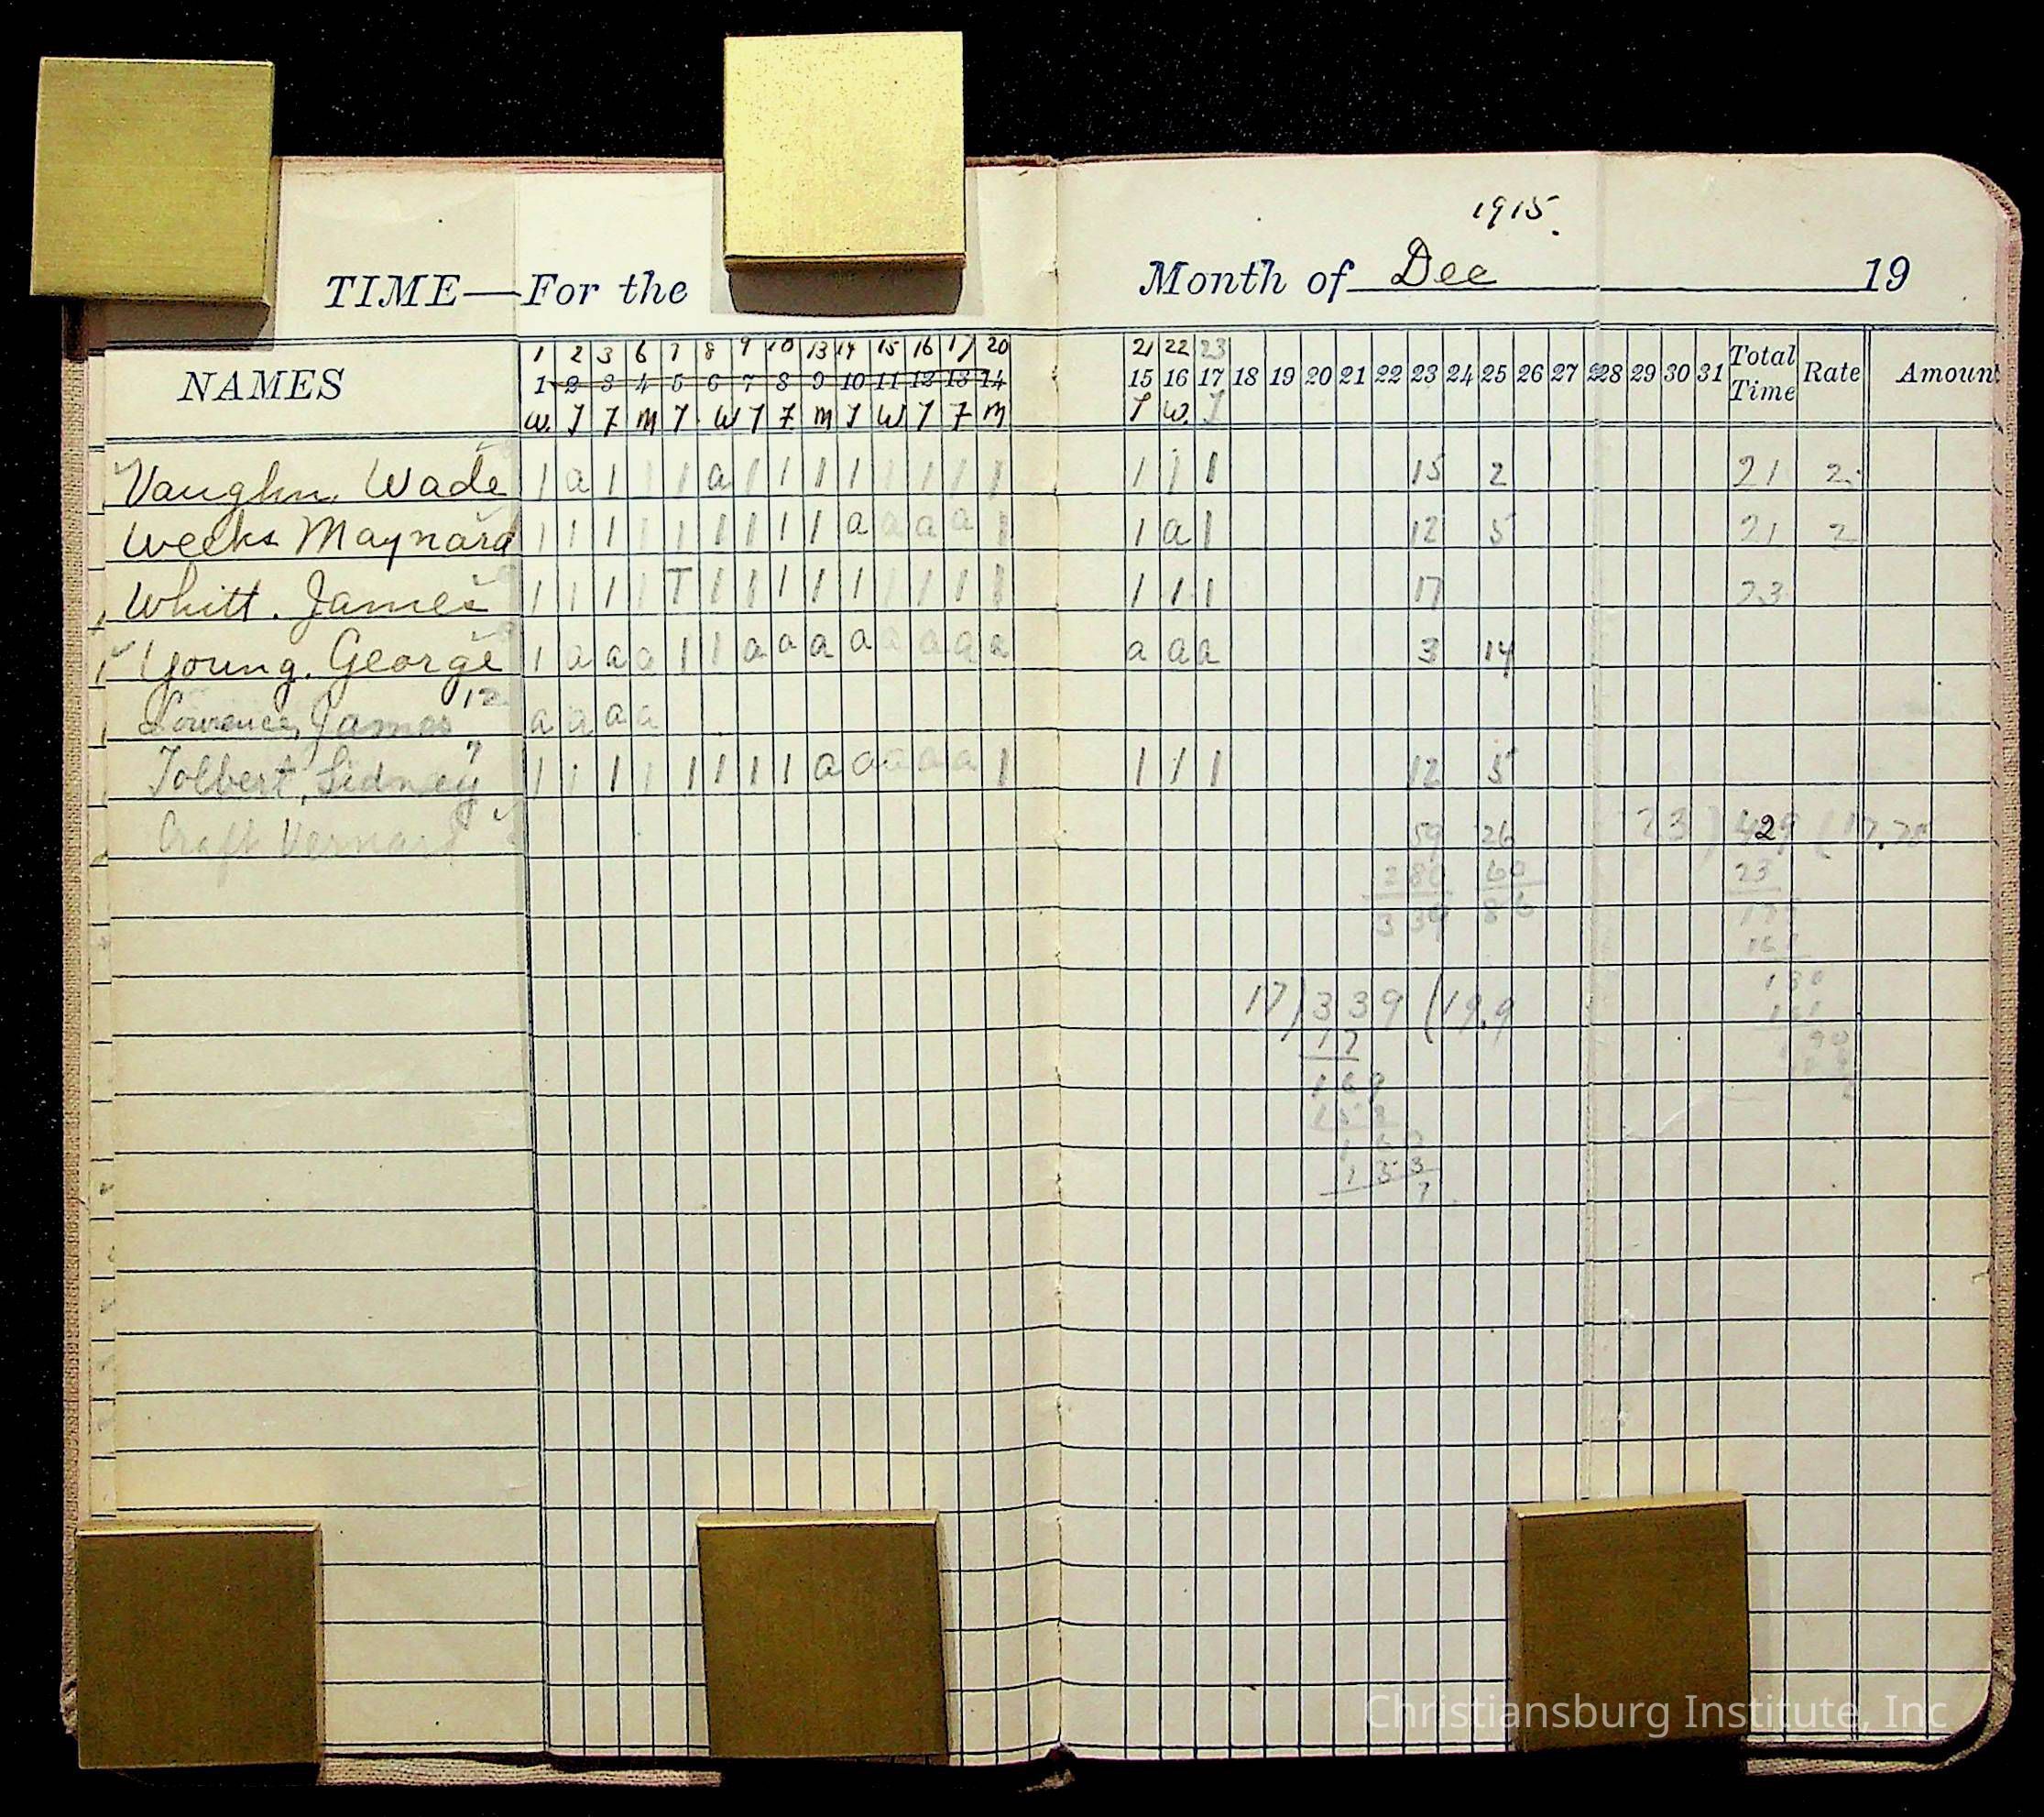 1915.
TIME—For the Month of Dec 19
1 2 3 6 7 8 9 10 13 14 15 16 17 20 21 22 23
NAMES 1 2 3 4 5 6 7 8 9 10 11 12 13 14 15 16 17 18 19 20 21 22 23 24 25 26 27 28 29 30 31 Total Time Rate Amount
W. T F M T. W T F M T W T F M T W. T
Vaughn, Wade 1 a 1 1 1 a 1 1 1 1 1 1 1 1 1 1 1 15 2 21 2
Weeks Maynard 1 1 1 1 1 1 1 1 1 a a a a 1 1 a 1 12 5 21 2
Whitt. James 1 1 1 1 T 1 1 1 1 1 1 1 1 1 1 1 1 17 23
Young. George 1 a a a 1 1 a a a a a a a a a a a 3 14
James 12 a a a a
Tolbert, Sidney 7 1 1 1 1 1 1 1 1 a a a a a 1 1 1 1 12 5
Craft 59 26 23)
280 60 23
339 86
17)339(19.9
17
169
153
7
Christiansburg Institute, Inc